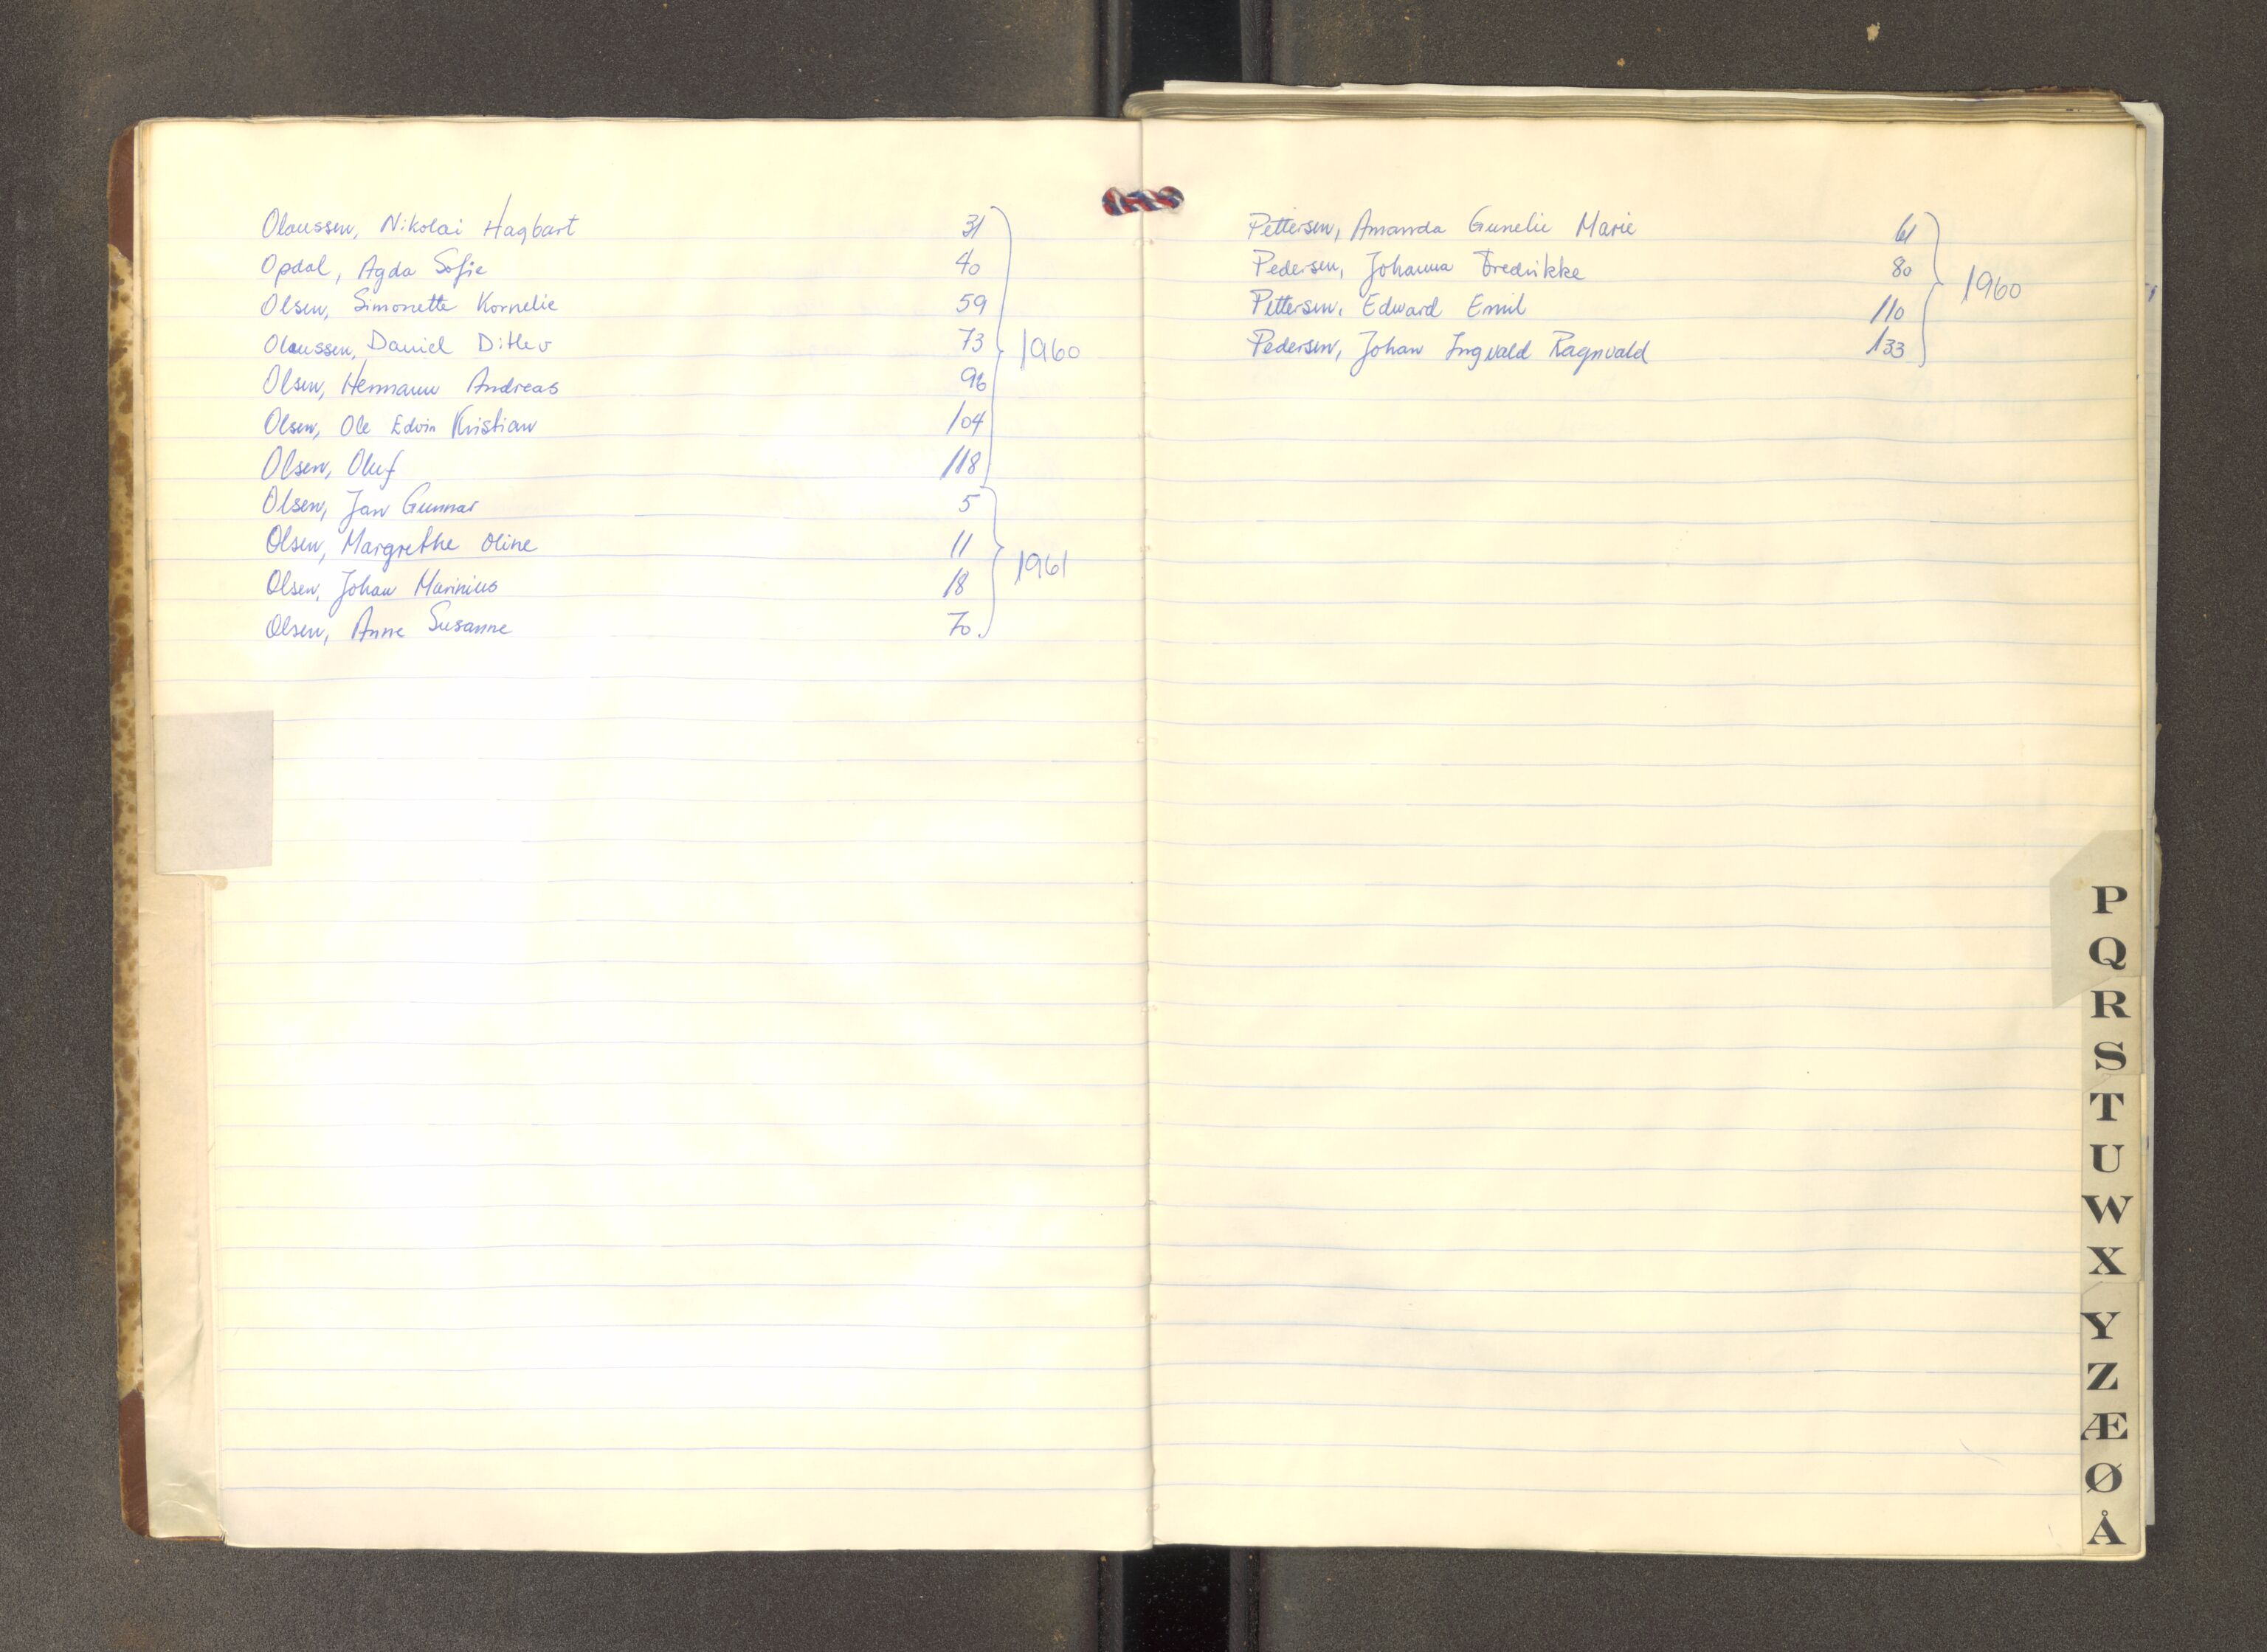 Olaussen, Nikolai Hagbart 31
Opdal, Agda Sofie 40
Olsen, Simonette Kornelie 59
Olaussen, Daniel Ditlev 73
1960
Olsen, Hermann Andreas 96
Olsen, Ole Edvin Kristian 104
Olsen, Oluf 118
Olsen, Jan Gunnar 5
Olsen, Margrethe Oline 11
1961
Olsen, Johan Marinius 18
Olsen, Anne Susanne 70.
Pettersen, Amanda Gunelie Marie 61
Pedersen, Johanna Fredrikke 80
1960
Pettersen, Edward Emil 110
Pedersen, Johan Ingvald Ragnvald 133
P
Q
R
S
T
U
W
X
Y
Z
Æ
Ø
Å